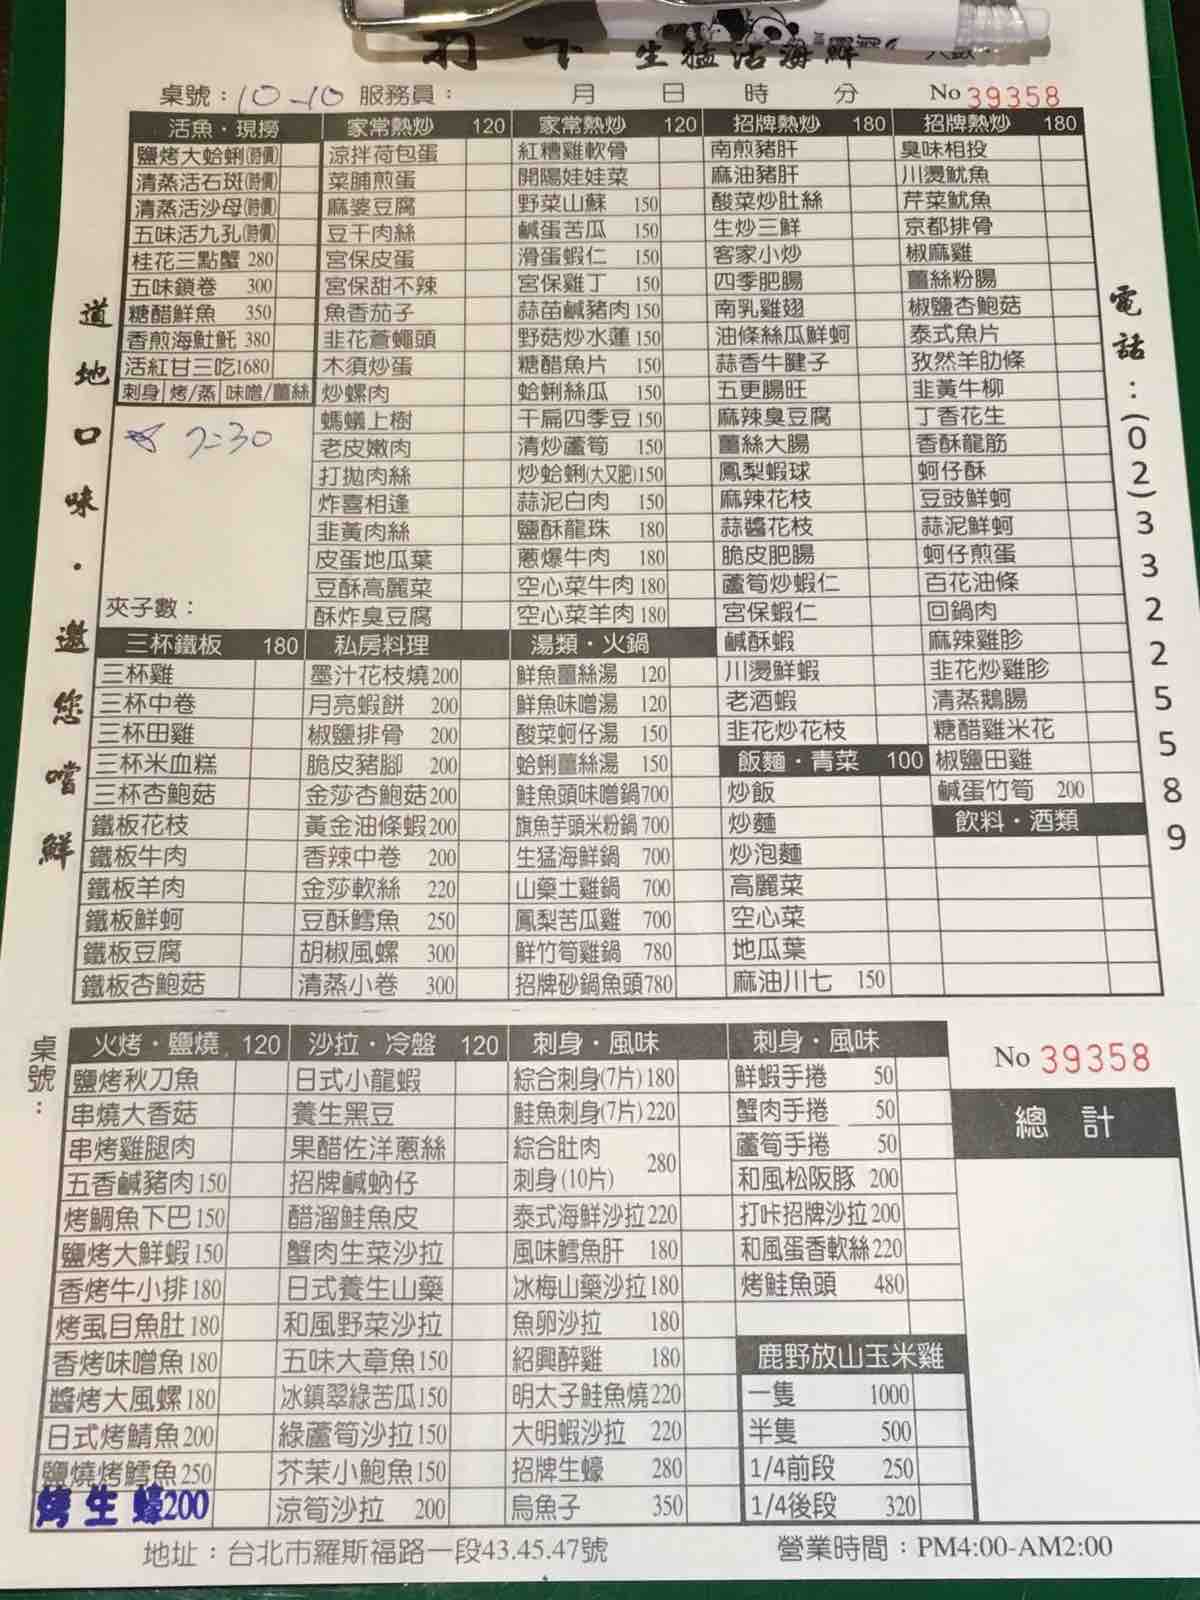 生猛活海鮮
桌號：10-10 服務員： 月 日 時 分 No 39358
活魚・現撈
鹽烤大蛤蜊(時價)
清蒸活石斑(時價)
清蒸活沙母(時價)
五味活九孔(時價)
桂花三點蟹 280
五味鎖卷 300
糖醋鮮魚 350
香煎海魟魠 380
活紅甘三吃1680
刺身 烤/蒸 味噌/薑絲
7:30
夾子數：
家常熱炒 120
涼拌荷包蛋
菜脯煎蛋
麻婆豆腐
豆干肉絲
宮保皮蛋
宮保甜不辣
魚香茄子
韭花蒼蠅頭
木須炒蛋
炒螺肉
螞蟻上樹
老皮嫩肉
打拋肉絲
炸喜相逢
韭黃肉絲
皮蛋地瓜葉
豆酥高麗菜
酥炸臭豆腐
家常熱炒 120
紅糟雞軟骨
開陽娃娃菜
野菜山蘇 150
鹹蛋苦瓜 150
滑蛋蝦仁 150
宮保雞丁 150
蒜苗鹹豬肉 150
野菇炒水蓮 150
糖醋魚片 150
蛤蜊絲瓜 150
干扁四季豆 150
清炒蘆筍 150
炒蛤蜊(大又肥)150
蒜泥白肉 150
鹽酥龍珠 180
蔥爆牛肉 180
空心菜牛肉 180
空心菜羊肉 180
招牌熱炒 180
南煎豬肝
麻油豬肝
酸菜炒肚絲
生炒三鮮
客家小炒
四季肥腸
南乳雞翅
油條絲瓜鮮蚵
蒜香牛腱子
五更腸旺
麻辣臭豆腐
薑絲大腸
鳳梨蝦球
麻辣花枝
蒜醬花枝
脆皮肥腸
蘆筍炒蝦仁
宮保蝦仁
鹹酥蝦
川燙鮮蝦
老酒蝦
韭花炒花枝
招牌熱炒 180
臭味相投
川燙魷魚
芹菜魷魚
京都排骨
椒麻雞
薑絲粉腸
椒鹽杏鮑菇
泰式魚片
孜然羊肋條
韭黃牛柳
丁香花生
香酥龍筋
蚵仔酥
豆豉鮮蚵
蒜泥鮮蚵
蚵仔煎蛋
百花油條
回鍋肉
麻辣雞胗
韭花炒雞胗
清蒸鵝腸
糖醋雞米花
椒鹽田雞
鹹蛋竹筍 200
三杯鐵板 180
三杯雞
三杯中卷
三杯田雞
三杯米血糕
三杯杏鮑菇
鐵板花枝
鐵板牛肉
鐵板羊肉
鐵板鮮蚵
鐵板豆腐
鐵板杏鮑菇
私房料理
墨汁花枝燒200
月亮蝦餅 200
椒鹽排骨 200
脆皮豬腳 200
金莎杏鮑菇200
黃金油條蝦200
香辣中卷 200
金莎軟絲 220
豆酥鱈魚 250
胡椒風螺 300
清蒸小卷 300
湯類・火鍋
鮮魚薑絲湯 120
鮮魚味噌湯 120
酸菜蚵仔湯 150
蛤蜊薑絲湯 150
鮭魚頭味噌鍋700
旗魚芋頭米粉鍋 700
生猛海鮮鍋 700
山藥土雞鍋 700
鳳梨苦瓜雞 700
鮮竹筍雞鍋 780
招牌砂鍋魚頭780
飯麵・青菜 100
炒飯
炒麵
炒泡麵
高麗菜
空心菜
地瓜葉
麻油川七 150
飲料・酒類
道地口味・邀您嚐鮮
電話：(02)33225589
桌號：
火烤・鹽燒 120
鹽烤秋刀魚
串燒大香菇
串烤雞腿肉
五香鹹豬肉150
烤鯛魚下巴150
鹽烤大鮮蝦150
香烤牛小排180
烤虱目魚肚180
香烤味噌魚180
醬烤大風螺180
日式烤鯖魚200
鹽燒烤鱈魚250
烤生蠔200
沙拉・冷盤 120
日式小龍蝦
養生黑豆
果醋佐洋蔥絲
招牌鹹蚋仔
醋溜鮭魚皮
蟹肉生菜沙拉
日式養生山藥
和風野菜沙拉
五味大章魚150
冰鎮翠綠苦瓜150
綠蘆筍沙拉150
芥茉小鮑魚150
涼筍沙拉 200
刺身・風味
綜合刺身(7片)180
鮭魚刺身(7片)220
綜合肚肉
刺身(10片) 280
泰式海鮮沙拉220
風味鱈魚肝 180
冰梅山藥沙拉180
魚卵沙拉 180
紹興醉雞 180
明太子鮭魚燒220
大明蝦沙拉 220
招牌生蠔 280
烏魚子 350
刺身・風味
鮮蝦手捲 50
蟹肉手捲 50
蘆筍手捲 50
和風松阪豚 200
打咔招牌沙拉200
和風蛋香軟絲220
烤鮭魚頭 480
鹿野放山玉米雞
一隻 1000
半隻 500
1/4前段 250
1/4後段 320
No 39358
總計
地址：台北市羅斯福路一段43.45.47號 營業時間：PM4:00-AM2:00